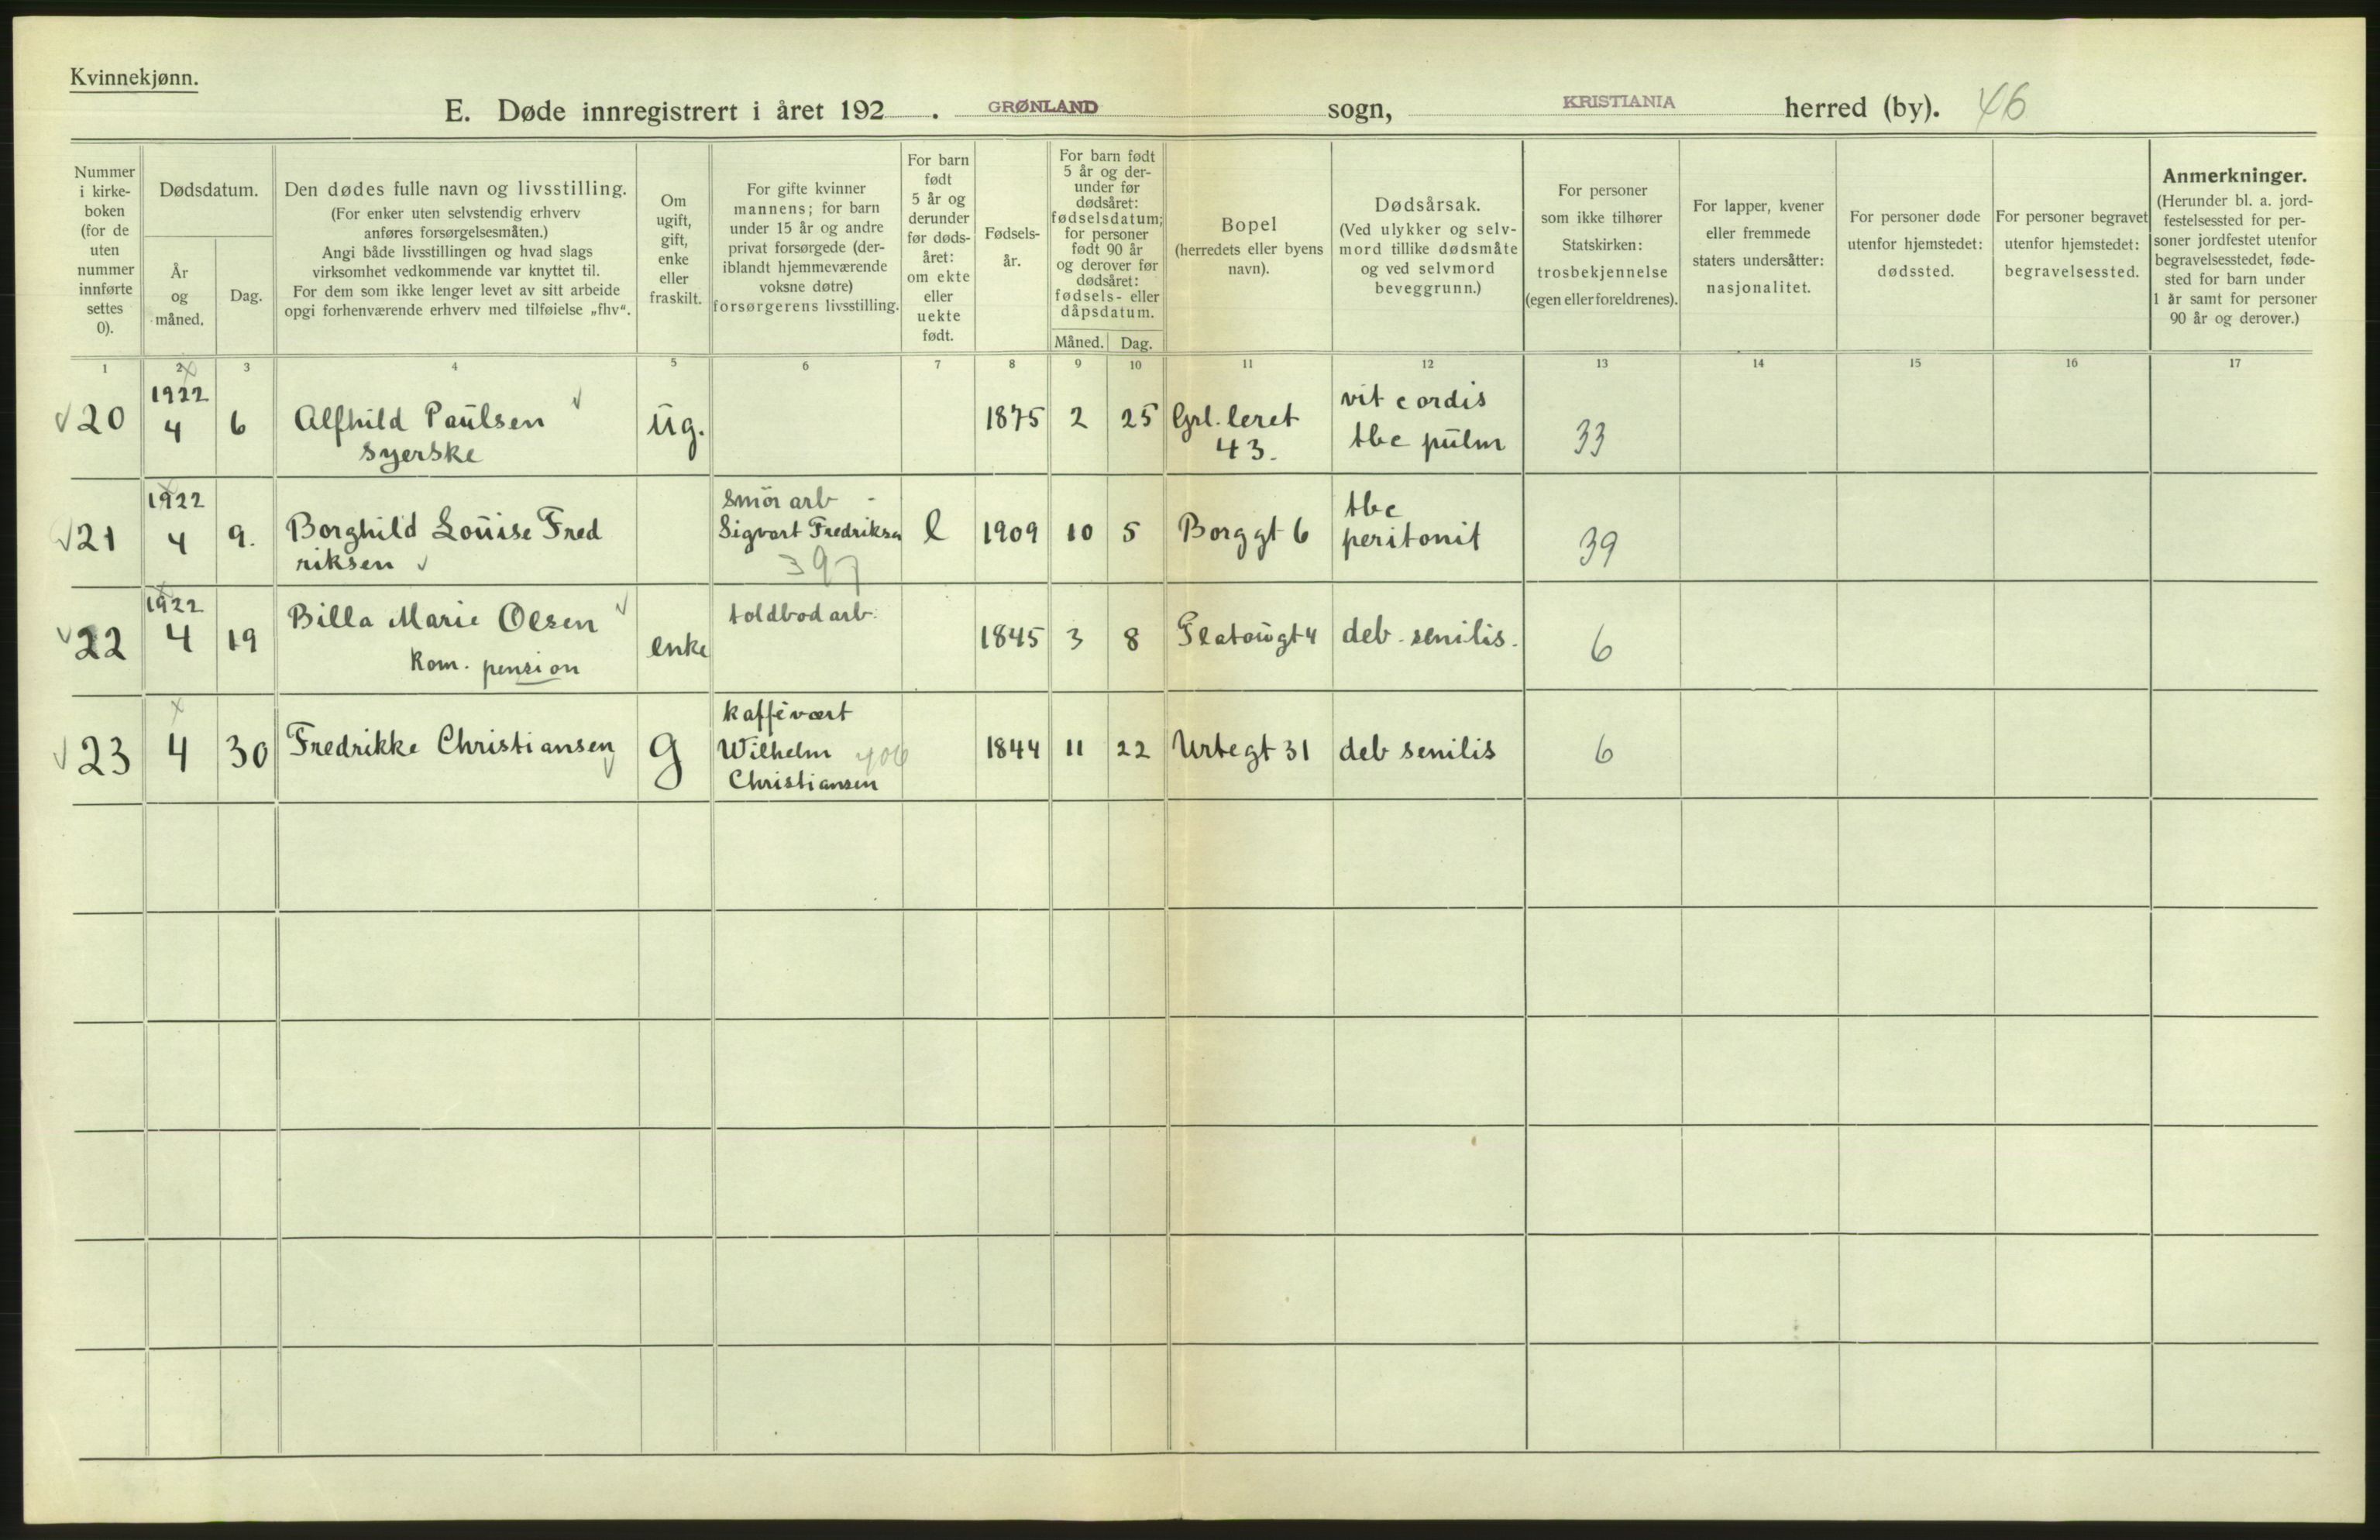 Kvinnekjønn.
E. Døde innregistrert i året 192 . GRØNLAND sogn, KRISTIANIA herred (by). 46
Nummer
i kirke-
boken
(for de
uten
nummer
innførte
settes
0).
Dødsdatum.
År
og
måned.
Dag.
Den dødes fulle navn og livsstilling.
(For enker uten selvstendig erhverv
anføres forsørgelsesmåten.)
Angi både livsstillingen og hvad slags
virksomhet vedkommende var knyttet til.
For dem som ikke lenger levet av sitt arbeide
opgi forhenværende erhverv med tilføielse „fhv“.
Om
ugift,
gift,
enke
eller
fraskilt.
For gifte kvinner
mannens; for barn
under 15 år og andre
privat forsørgede (der-
iblandt hjemmeværende
voksne døtre)
forsørgerens livsstilling.
For barn
født
5 år og
derunder
før døds-
året:
om ekte
eller
uekte
født.
Fødsels-
år.
For barn født
5 år og der-
under før
dødsåret:
fødselsdatum;
for personer
født 90 år
og derover før
dødsåret:
fødsels- eller
dåpsdatum.
Måned. Dag.
Bopel
(herredets eller byens
navn).
Dødsårsak.
(Ved ulykker og selv-
mord tillike dødsmåte
og ved selvmord
beveggrunn.)
For personer
som ikke tilhører
Statskirken:
trosbekjennelse
(egen eller foreldrenes).
For lapper, kvener
eller fremmede
staters undersåtter:
nasjonalitet.
For personer døde
utenfor hjemstedet:
dødssted.
For personer begravet
utenfor hjemstedet:
begravelsessted.
Anmerkninger.
(Herunder bl. a. jord-
festelsessted for per-
soner jordfestet utenfor
begravelsesstedet, føde-
sted for barn under
1 år samt for personer
90 år og derover.)
1 2 3 4 5 6 7 8 9 10 11 12 13 14 15 16 17
20
1922
4
6
Alfhild Paulsen
syerske
ug.
1875
2
25
Grl. leret
43.
vit cordis
tbc pulm
33
21
1922
4
9.
Borghild Louise Fred
riksen
smör arb
Sigvart Fredriksn
397
e
1909
10
5
Borggt 6
tbc
peritonit
39
22
1922
4
19
Billa Marie Olsen
kom. pension
enke
toldbod arb.
1845
3
8
Platougt 4
deb. senilis.
6
23
4
30
Fredrikke Christiansen
g
kaffévært
Wilhelm 406
Christiansen
1844
11
22
Urtegt 31
deb senilis
6